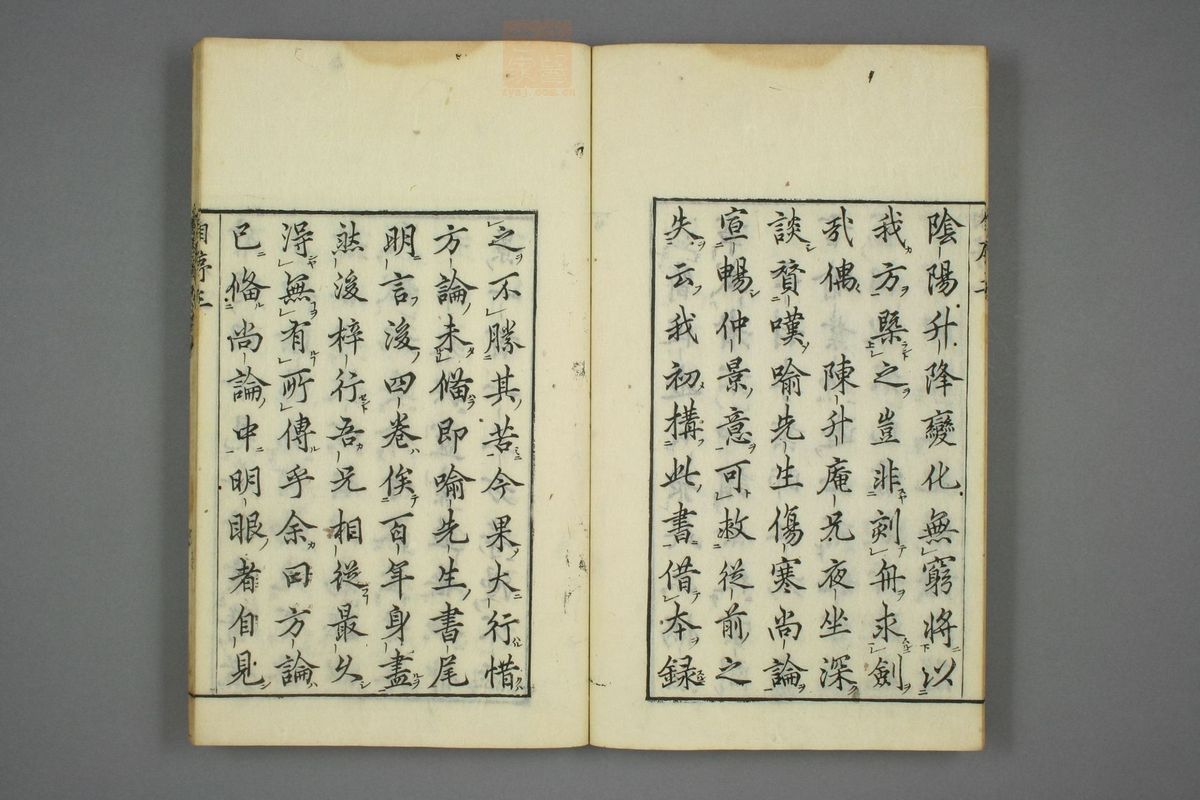 陰陽升降變化無窮將以
我方槩之豈非刻舟求劍
哉偶陳升庵兄夜坐深
談贅嘆喻先生傷寒尚論
宣暢仲景意可救從前之
失云我初構此書借本録
之不勝其苦今果大行惜
方論未備即喻先生書尾
明言後四卷俟百年身盡
然後梓行吾兄相從最久
得無有所傳乎余曰方論
已俻尚論中明眼者自見
自序三